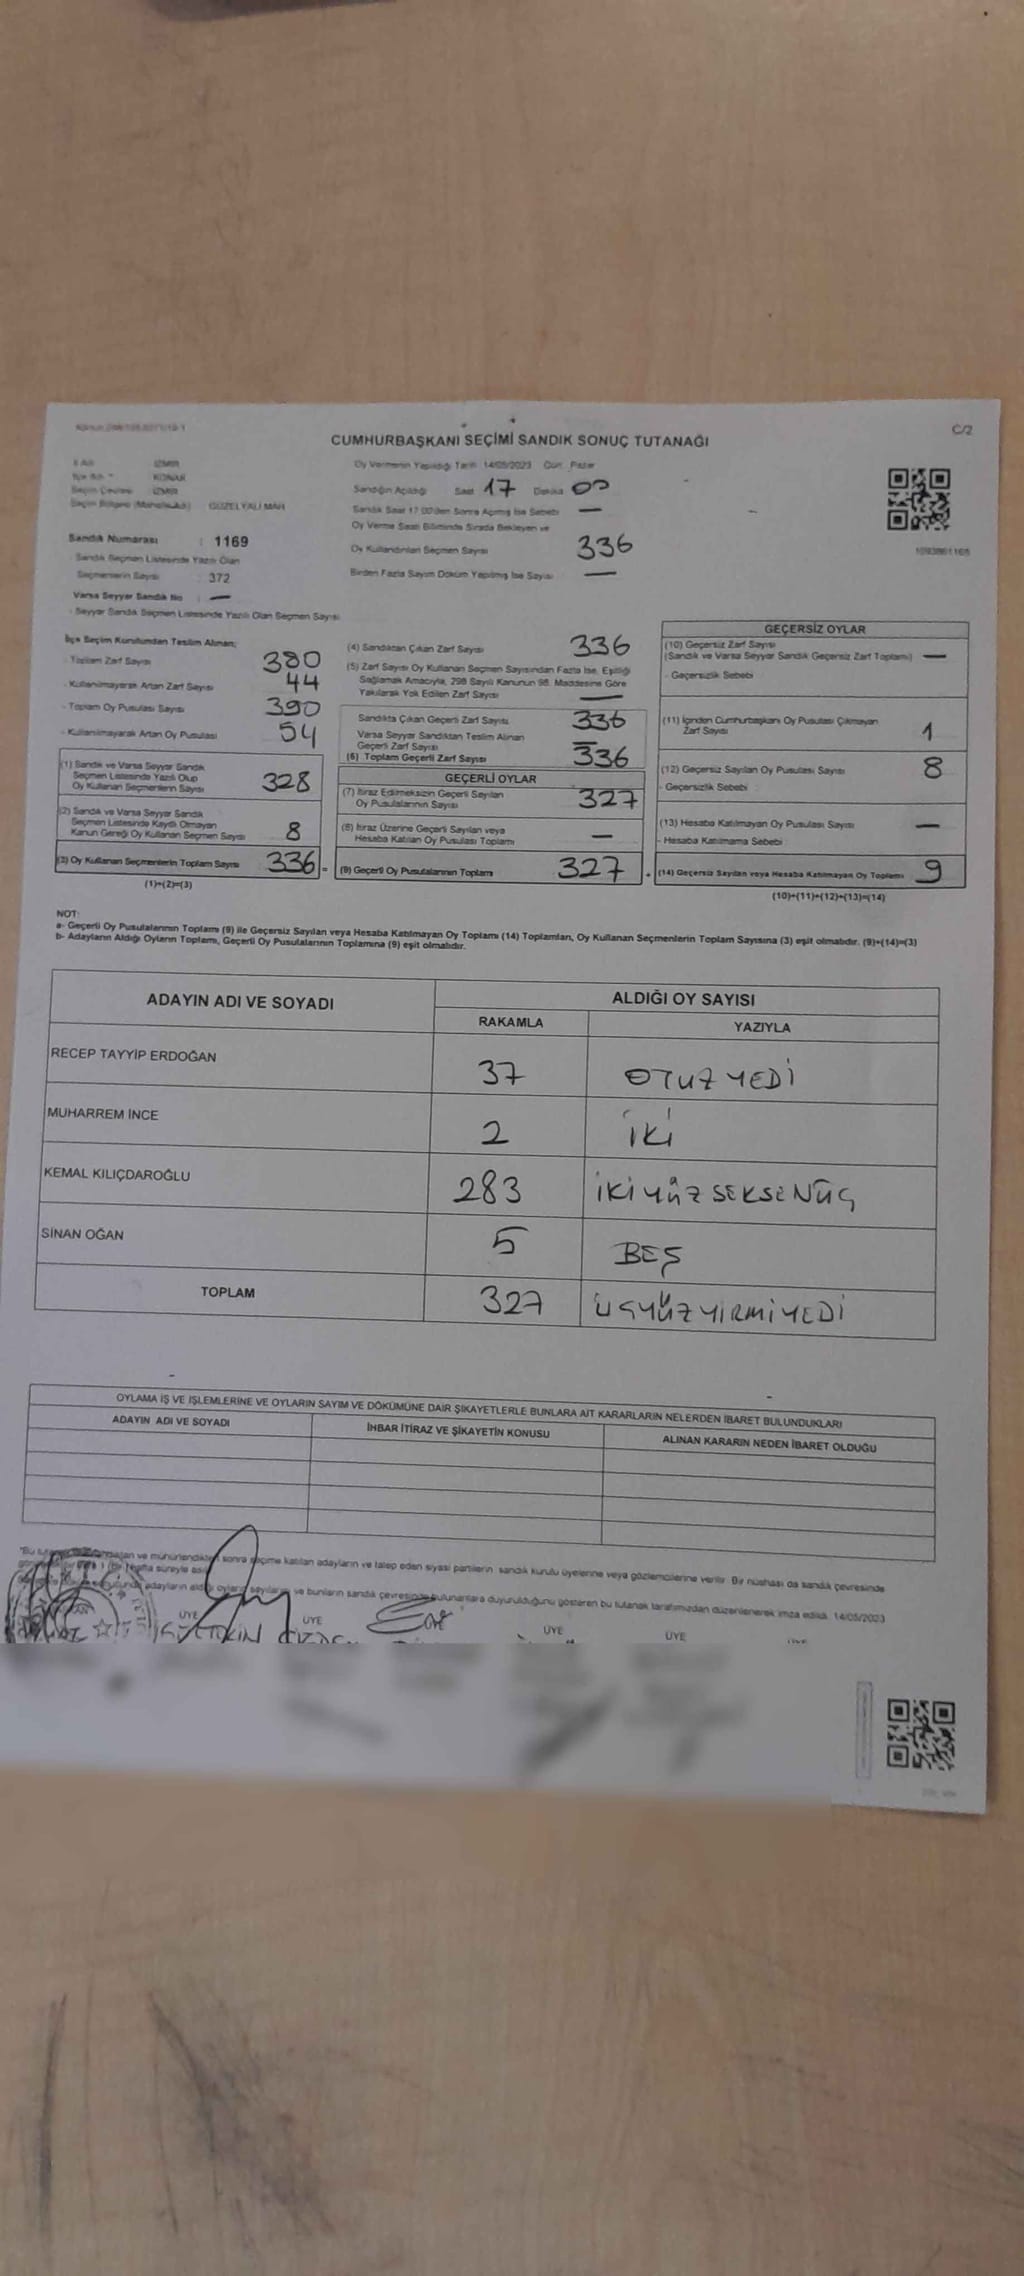 C/2
CUMHURBAŞKANI SEÇİMİ SANDIK SONUÇ TUTANAĞI
İl Adı : İZMİR
KONAK
Seçim Çevresi : İZMİR
Seçim Bölgesi (Mahalle/Köy) : GÜZELYALI MAH.
Sandık Numarası : 1169
Sandık Seçmen Listesinde Yazılı Olan
Seçmenlerin Sayısı : 372
Varsa Seyyar Sandık No : —
- Seyyar Sandık Seçmen Listesinde Yazılı Olan Seçmen Sayısı
Oy Vermenin Yapıldığı Tarih 14/05/2023 Gün: Pazar
Sandığın Açıldığı Saat 17 Dakika 00
Sandık Saat 17.00'den Sonra Açılmış İse Sebebi —
Oy Verme Saati Bitiminde Sırada Bekleyen ve
Oy Kullandırılan Seçmen Sayısı 336
Birden Fazla Sayım Döküm Yapılmış İse Sayısı —
İlçe Seçim Kurulundan Teslim Alınan;
- Toplam Zarf Sayısı 380
- Kullanılmayarak Artan Zarf Sayısı 44
- Toplam Oy Pusulası Sayısı 390
- Kullanılmayarak Artan Oy Pusulası 54
(1) Sandık ve Varsa Seyyar Sandık
Seçmen Listesinde Yazılı Olup
Oy Kullanan Seçmenlerin Sayısı 328
(2) Sandık ve Varsa Seyyar Sandık
Seçmen Listesinde Kayıtlı Olmayan
Kanun Gereği Oy Kullanan Seçmen Sayısı 8
(3) Oy Kullanan Seçmenlerin Toplam Sayısı 336 =
(1)+(2)=(3)
(4) Sandıktan Çıkan Zarf Sayısı 336
(5) Zarf Sayısı Oy Kullanan Seçmen Sayısından Fazla İse, Eşitliği
Sağlamak Amacıyla, 298 Sayılı Kanunun 98. Maddesine Göre
Yakılarak Yok Edilen Zarf Sayısı —
Sandıkta Çıkan Geçerli Zarf Sayısı 336
Varsa Seyyar Sandıktan Teslim Alınan
Geçerli Zarf Sayısı —
(6) Toplam Geçerli Zarf Sayısı 336
GEÇERLİ OYLAR
(7) İtiraz Edilmeksizin Geçerli Sayılan
Oy Pusulalarının Sayısı 327
(8) İtiraz Üzerine Geçerli Sayılan veya
Hesaba Katılan Oy Pusulası Toplamı —
(9) Geçerli Oy Pusulalarının Toplamı 327 +
GEÇERSİZ OYLAR
(10) Geçersiz Zarf Sayısı
(Sandık ve Varsa Seyyar Sandık Geçersiz Zarf Toplamı) —
- Geçersizlik Sebebi
(11) İçinden Cumhurbaşkanı Oy Pusulası Çıkmayan
Zarf Sayısı 1
(12) Geçersiz Sayılan Oy Pusulası Sayısı 8
- Geçersizlik Sebebi
(13) Hesaba Katılmayan Oy Pusulası Sayısı —
- Hesaba Katılmama Sebebi
(14) Geçersiz Sayılan veya Hesaba Katılmayan Oy Toplamı 9
(10)+(11)+(12)+(13)=(14)
NOT:
a- Geçerli Oy Pusulalarının Toplamı (9) ile Geçersiz Sayılan veya Hesaba Katılmayan Oy Toplamı (14) Toplamları, Oy Kullanan Seçmenlerin Toplam Sayısına (3) eşit olmalıdır. (9)+(14)=(3)
b- Adayların Aldığı Oyların Toplamı, Geçerli Oy Pusulalarının Toplamına (9) eşit olmalıdır.
ADAYIN ADI VE SOYADI ALDIĞI OY SAYISI
RAKAMLA YAZIYLA
RECEP TAYYİP ERDOĞAN 37 OTUZ YEDİ
MUHARREM İNCE 2 İKİ
KEMAL KILIÇDAROĞLU 283 İKİ YÜZ SEKSENÜÇ
SİNAN OĞAN 5 BEŞ
TOPLAM 327 ÜÇYÜZYİRMİYEDİ
OYLAMA İŞ VE İŞLEMLERİNE VE OYLARIN SAYIM VE DÖKÜMÜNE DAİR ŞİKAYETLERLE BUNLARA AİT KARARLARIN NELERDEN İBARET BULUNDUKLARI
ADAYIN ADI VE SOYADI İHBAR İTİRAZ VE ŞİKAYETİN KONUSU ALINAN KARARIN NEDEN İBARET OLDUĞU
ve mühürlendikten sonra seçime katılan adayların ve talep eden siyasi partilerin sandık kurulu üyelerine veya gözlemcilerine verilir. Bir nüshası da sandık çevresinde
süreyle
adayların aldığı oyların sayıları ve bunların sandık çevresinde bulunanlara duyurulduğunu gösteren bu tutanak tarafımızdan düzenlenerek imza edildi. 14/05/2023
ÜYE ÜYE ÜYE ÜYE